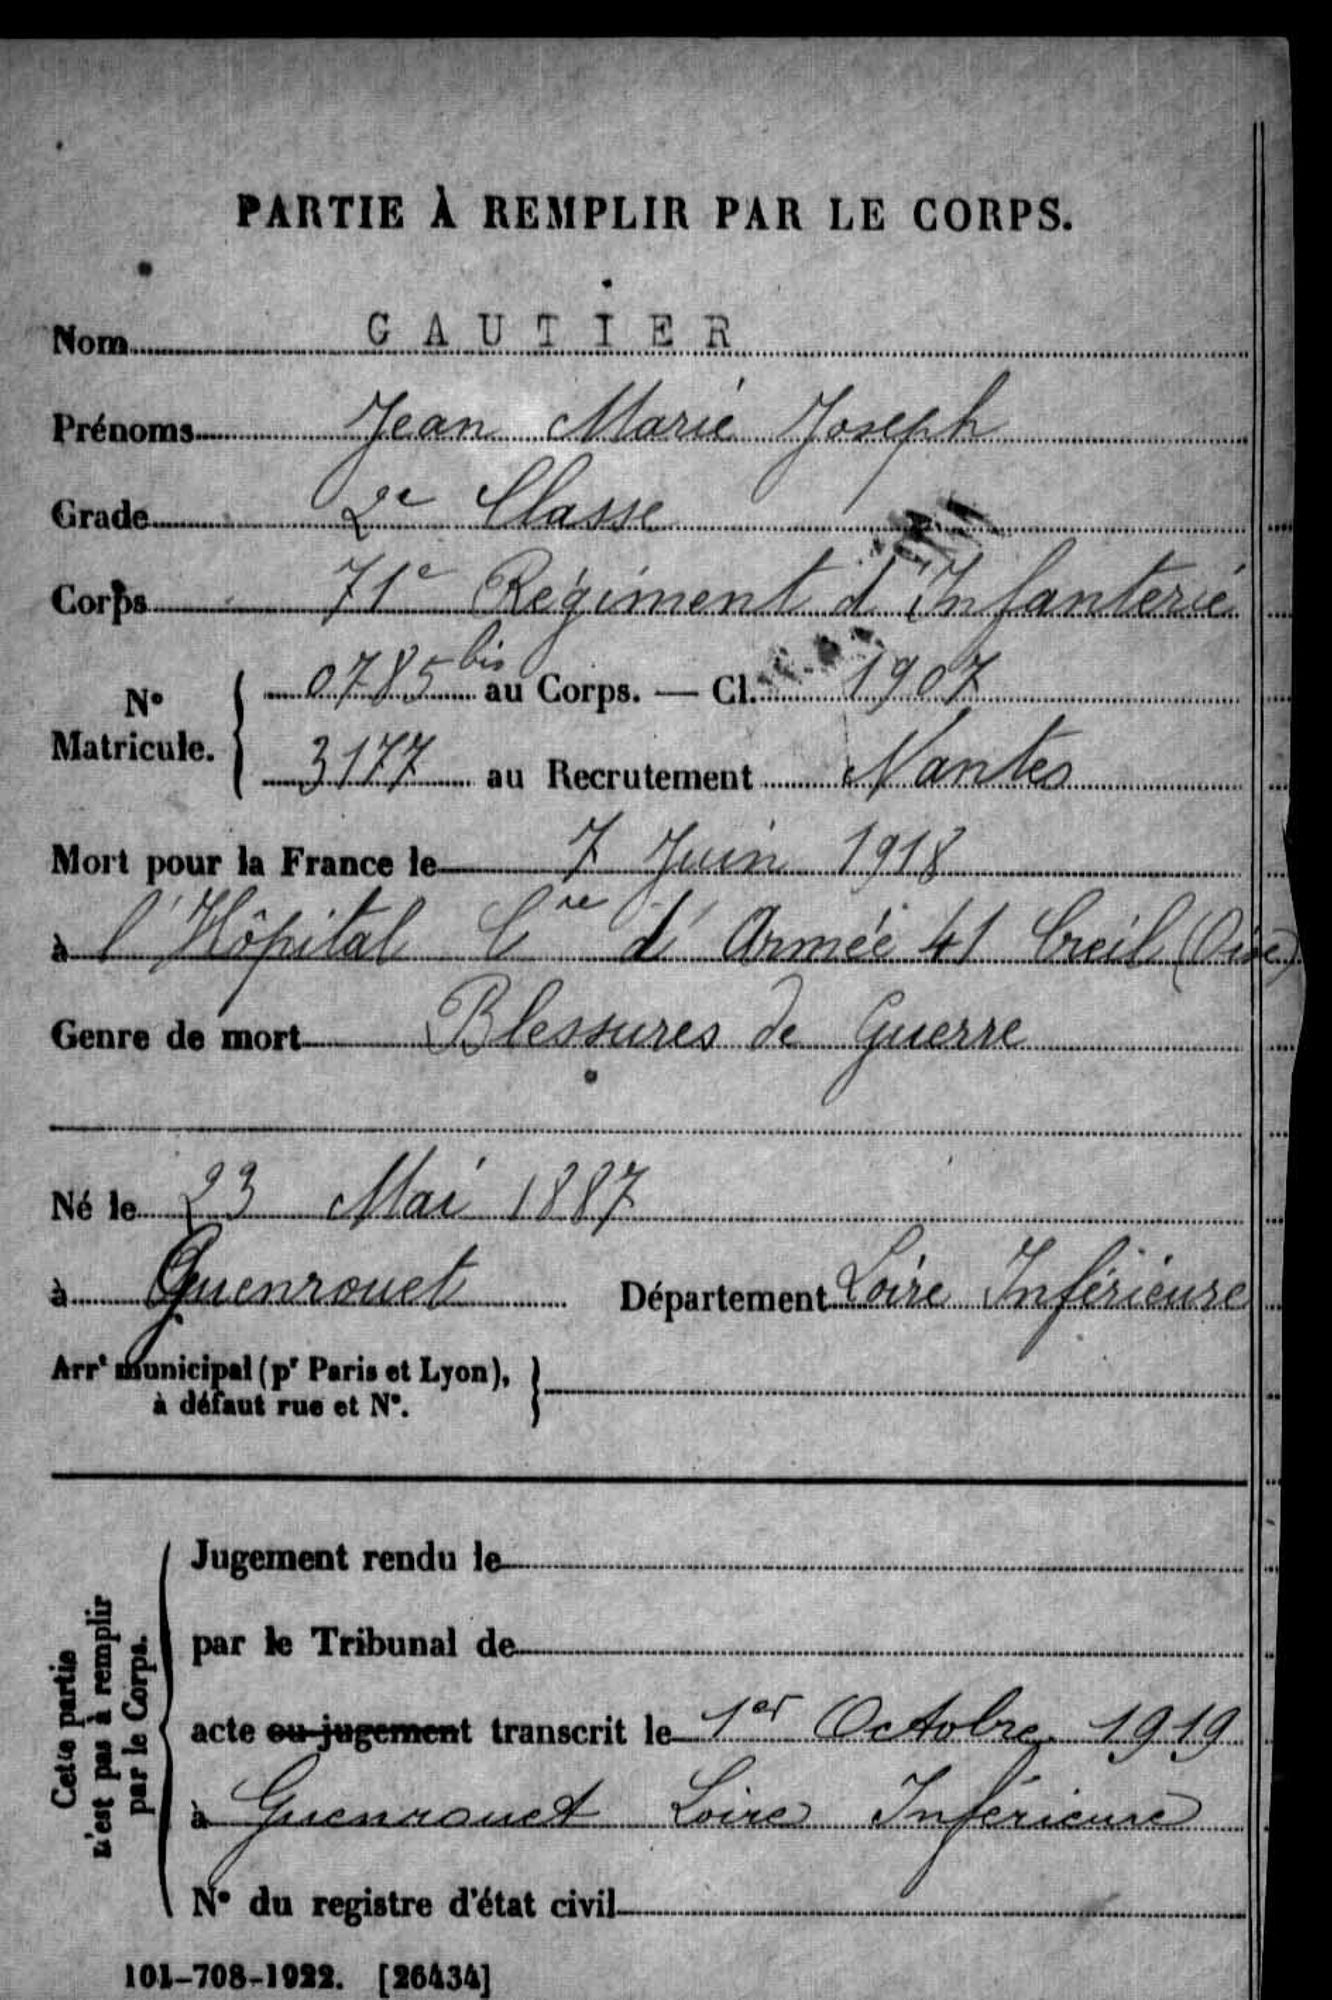 PARTIE À REMPLIR PAR LE CORPS.
Nom GAUTIER
Prénoms Jean Marie Joseph
Grade 2e Classe
Corps 71e Régiment d'Infanterie
N° Matricule. 0785 bis au Corps. — Cl. 1907
3177 au Recrutement Nantes
Mort pour la France le 7 Juin 1918
à l'Hôpital Cre d'Armée 41 Creil (Oise)
Genre de mort Blessures de Guerre
Né le 23 Mai 1887
à Guenrouet Département Loire Inférieure
Arrt municipal (pr Paris et Lyon),
à défaut rue et N°.
Cette partie
n'est pas à remplir
par le Corps.
Jugement rendu le
par le Tribunal de
acte ou jugement transcrit le 1er Octobre 1919
à Guenrouet Loire Inférieure
N° du registre d'état civil
101-708-1922. [26434]